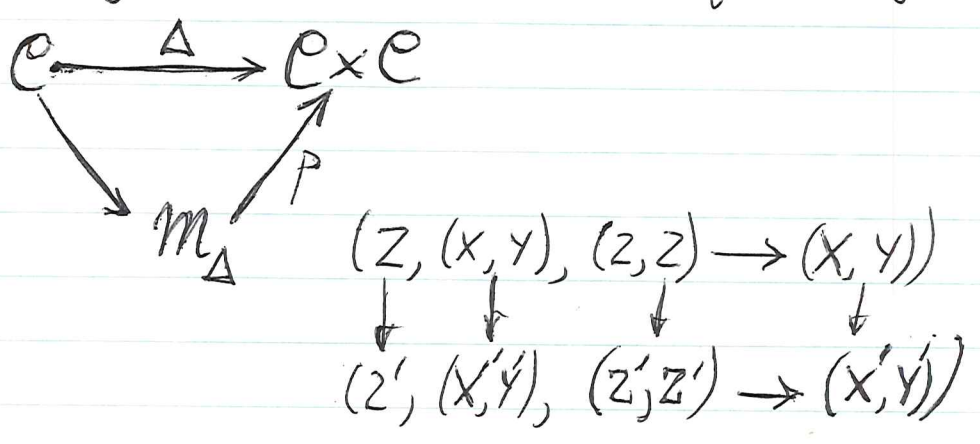 Δ
𝒞 → 𝒞 x 𝒞
P
m_Δ
(Z, (X, Y), (Z, Z) → (X, Y))
(Z', (X', Y'), (Z', Z') → (X', Y'))